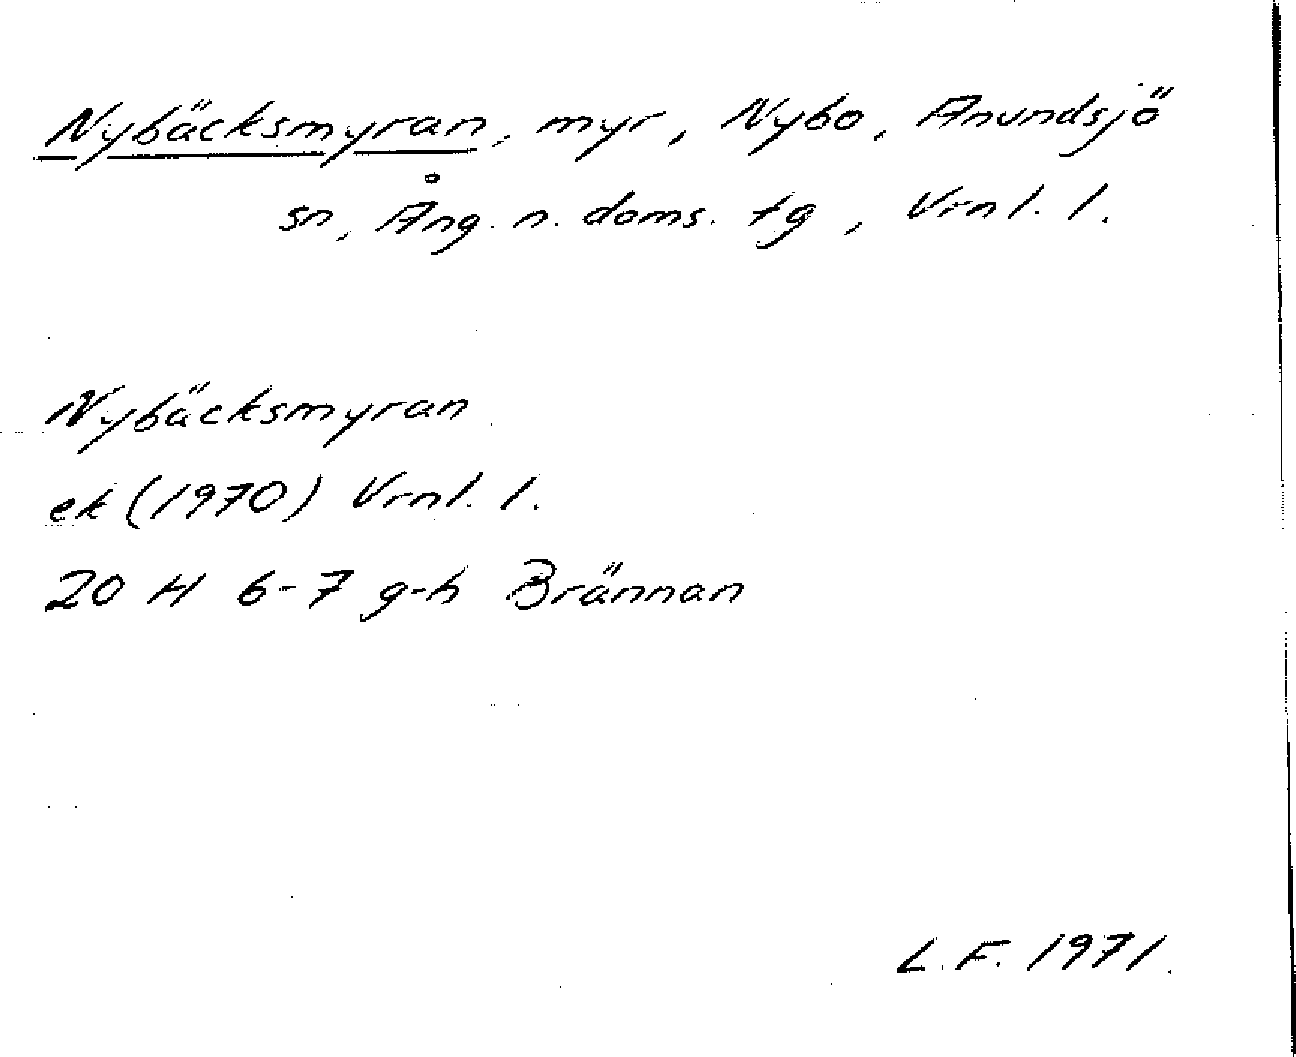 Nybäcksmyran, myr, Nybo, Anundsjö
sn, Ång. n. doms. tg, Vrnl. l.
Nybäcksmyran
ek (1970) Vrnl. l.
20 H 6-7 g-h Brännan
L.F. 1971.